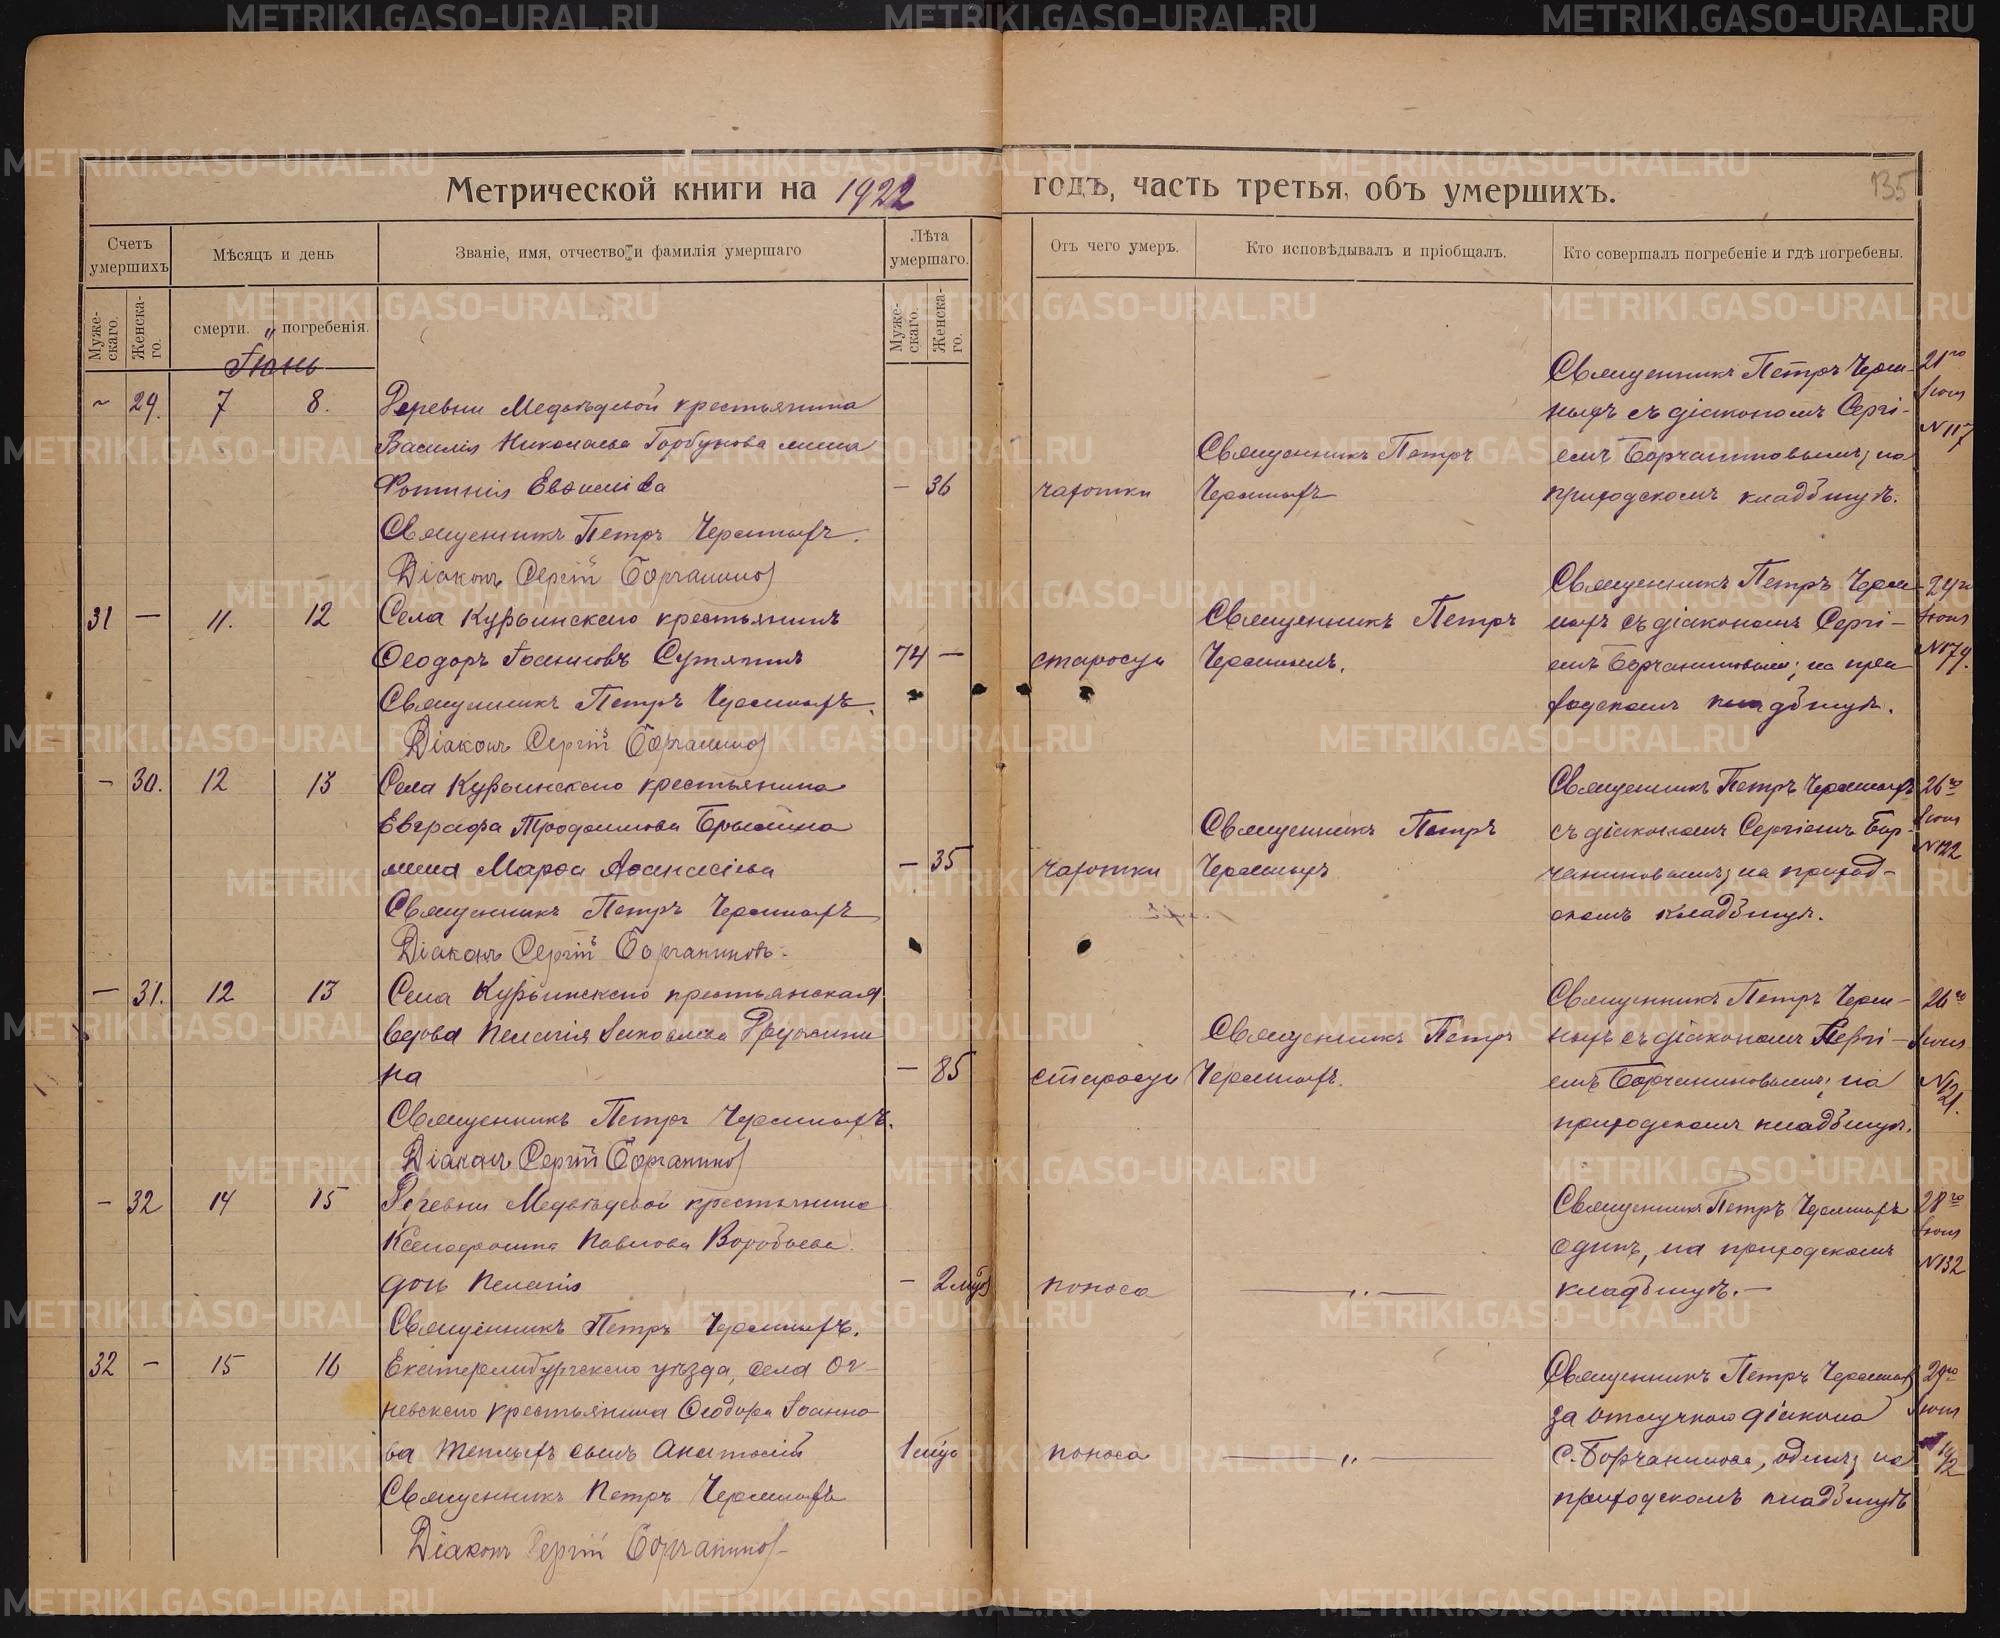 Метрической книги на 1922
годъ, часть третья, объ умершихъ.
135
Счетъ умершихъ
Мѣсяцъ и день
Званіе, имя, отчество и фамилія умершаго
Лѣта умершаго.
Отъ чего умеръ.
Кто исповѣдывалъ и пріобщалъ.
Кто совершалъ погребеніе и гдѣ погребены.
Муже-скаго.
Женска-го.
смерти.
погребенія.
Муже-скаго.
Женска-го.
Іюнь
29. 7 8.
Деревни Медвѣдевой крестьянина
Василія Николаева Горбунова жена
Фотинія Евѳиміева
— 36
чахотки
Священникъ Петръ
Черемныхъ
Священникъ Петръ Черем-
ныхъ съ діакономъ Сергі-
емъ Борчаниновымъ; на
приходскомъ кладбищѣ.
21го
Іюня
№117
Священникъ Петръ Черемныхъ.
Діаконъ Сергій Борчаниновъ
31 — 11. 12
Села Курьинскаго крестьянинъ
Ѳеодоръ Іоанновъ Сутягинъ
74 —
старости
Священникъ Петръ
Черемныхъ.
Священникъ Петръ Черем-
ныхъ съ діакономъ Сергі-
емъ Борчаниновымъ; на при-
ходскомъ кладбищѣ.
24го
Іюня
Священникъ Петръ Черемныхъ.
Діаконъ Сергій Борчаниновъ
— 30. 12 13
Села Курьинскаго крестьянина
Евграфа
жена Марѳа Аѳанасіева
— 35
чахотки
Священникъ Петръ
Черемныхъ
Священникъ Петръ Черемныхъ
съ діакономъ Сергіемъ Бор-
чаниновымъ; на приход-
скомъ кладбищѣ.
26го
Іюня
№122
Священникъ Петръ Черемныхъ
Діаконъ Сергій Борчаниновъ.
— 31. 12 13
Села Курьинскаго крестьянская
вдова Пелагія Іаковлева Дружини
на
— 85
старости
Священникъ Петръ
Черемныхъ.
Священникъ Петръ Черем-
ныхъ съ діакономъ Сергі-
емъ Борчаниновымъ; на
приходскомъ кладбищѣ.
26го
Іюня
№121.
Священникъ Петръ Черемныхъ.
Діаконъ Сергій Борчаниновъ
— 32 14 15
Деревни Медвѣдевой крестьянина
Ксенофонта Павлова Воробьева
дочь Пелагія
— 2
поноса
— „ —
Священникъ Петръ Черемныхъ
одинъ, на приходскомъ
кладбищѣ. —
28го
Іюня
№132
Священникъ Петръ Черемныхъ.
32 — 15 16
Екатеринбургскаго уѣзда, села Ог-
невскаго крестьянина Ѳеодора Іоанно-
ва Теплыхъ сынъ Анатолій
1
поноса
— „ —
Священникъ Петръ Черемныхъ
за отлучкою діакона
С. Борчанинова, одинъ; на
приходскомъ кладбищѣ
29го
Іюня
Священникъ Петръ Черемныхъ
Діаконъ Сергій Борчаниновъ
METRIKI.GASO-URAL.RU